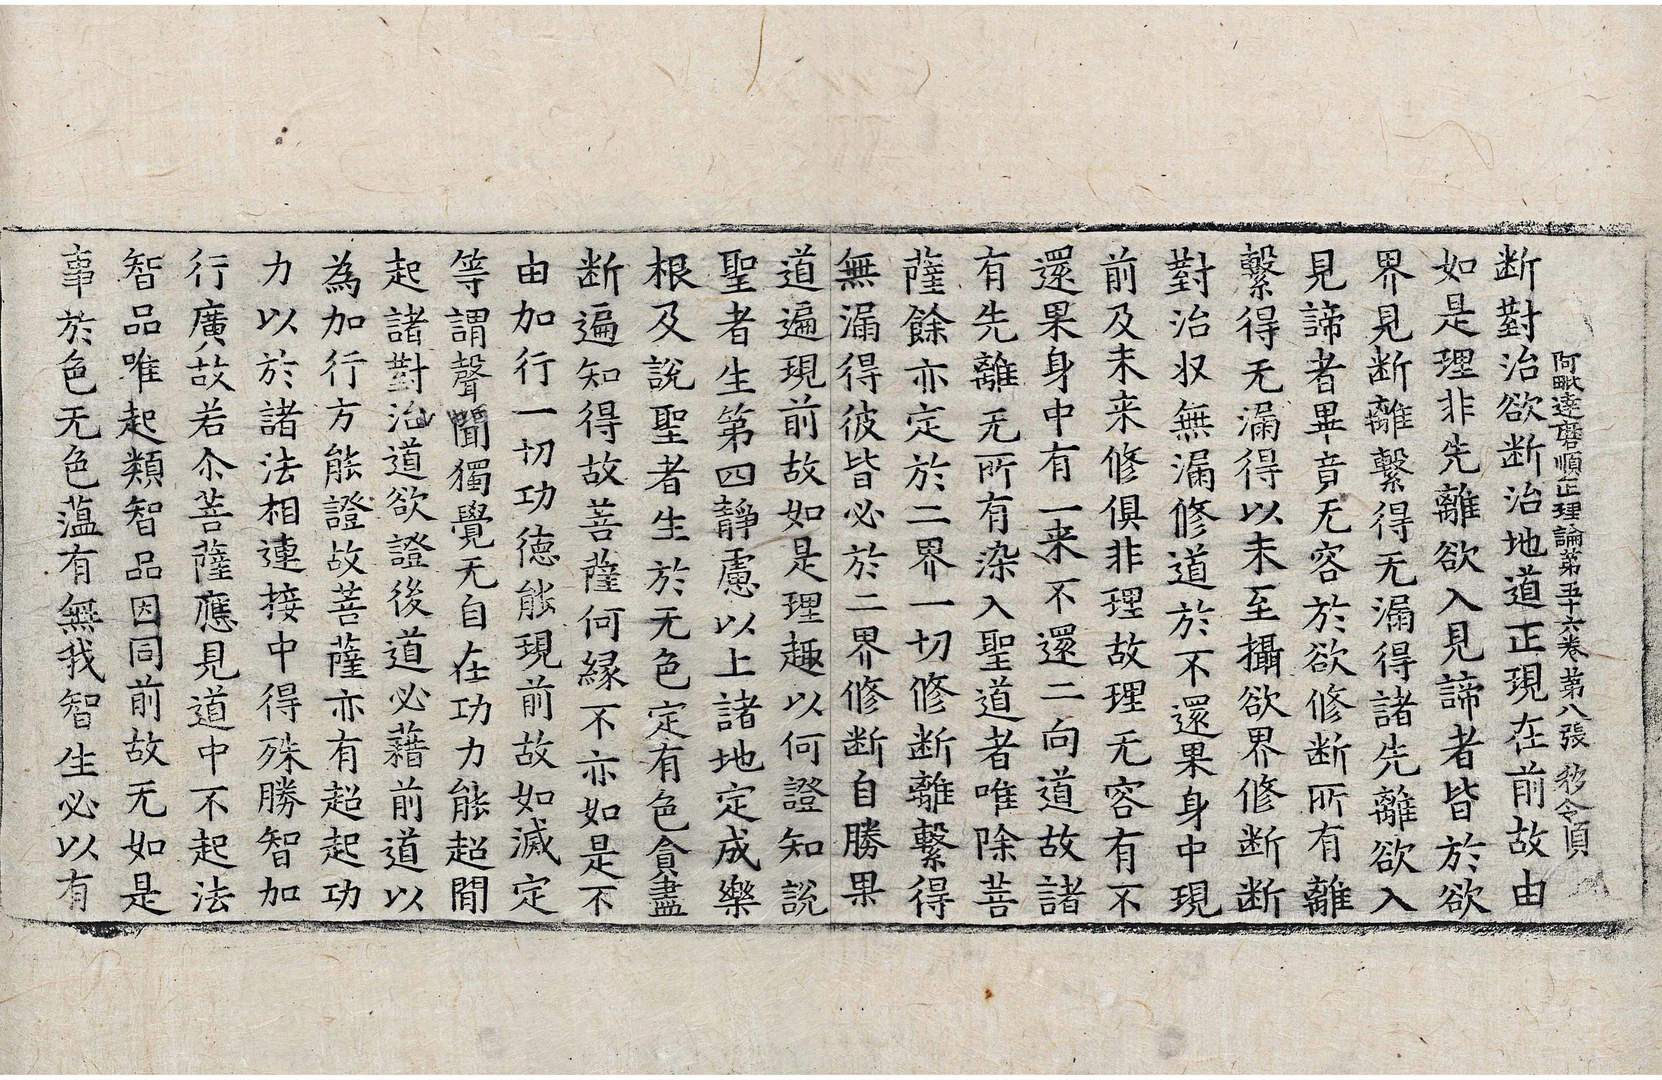 阿毗達磨順正理論第五十六卷第八張 移令
断對治欲断治地道正現在前故由
如是理非先離欲入見諦者皆於欲
界見断離繫得无漏得諸先離欲入
見諦者畢竟无容於欲修断所有離
繫得无漏得以未至攝欲界修断断
對治収無漏修道於不還果身中現
前及未来修俱非理故理无容有不
還果身中有一来不還二向道故諸
有先離无所有染入聖道者唯除菩
薩餘亦定於二界一切修断離繫得
無漏得彼皆必於二界修断自勝果
道遍現前故如是理趣以何證知說
聖者生第四靜慮以上諸地定成樂
根及說聖者生於无色定有色貪盡
断遍知得故菩薩何緣不亦如是不
由加行一切功德能現前故如滅定
等謂聲聞獨覺无自在功力能超間
起諸對治道欲證後道必藉前道以
為加行方能證故菩薩亦有超起功
力以於諸法相連接中得殊勝智加
行廣故若尒菩薩應見道中不起法
智品唯起類智品因同前故无如是
事於色无色薀有無我智生必以有